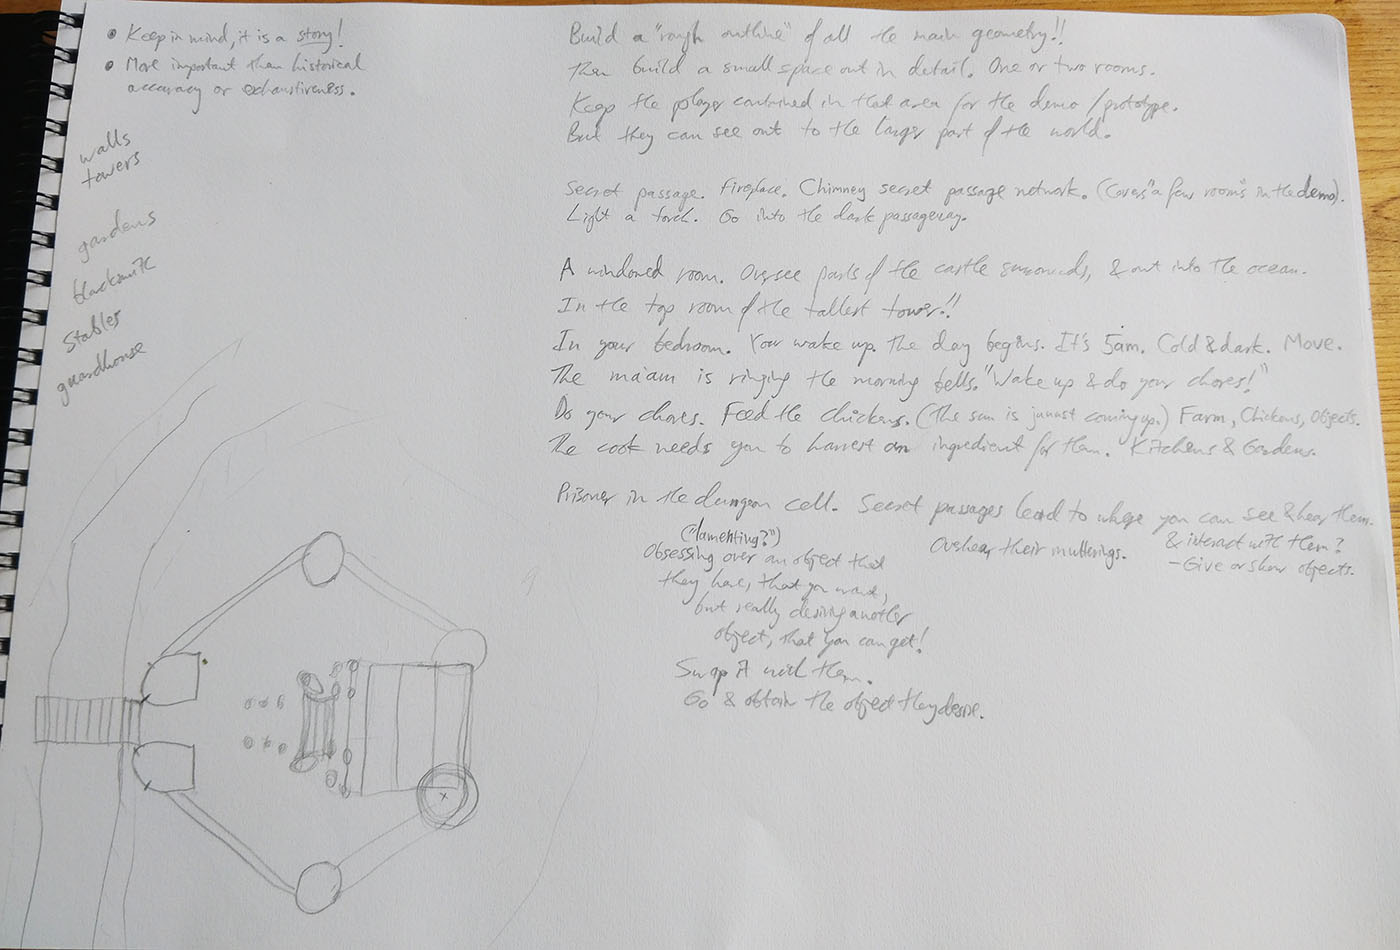 • Keep in mind, it is a story!
• More important than historical
accuracy or exhaustiveness.
walls
towers
gardens
blacksmith
stables
guardhouse
Build a "rough outline" of all the main geometry!!
Then build a small space out in detail. One or two rooms.
Keep the player contained in that area for the demo / prototype.
But they can see out to the larger part of the world.
Secret passage. Fireplace. Chimney secret passage network. (Covers "a few rooms" in the demo).
Light a torch. Go into the dark passageway.
A windowed room. Oversee parts of the castle surrounds, & out into the ocean.
In the top room of the tallest tower!!
In your bedroom. You wake up. The day begins. It's 5am. Cold & dark. Move.
The ma'am is ringing the morning bells. "Wake up & do your chores!"
Do your chores. Feed the chickens. (The sun is jusust coming up.) Farm, Chickens, Objects.
The cook needs you to harvest an ingredient for them. Kitchens & Gardens.
Prisoner in the dungeon cell. Secret passages lead to where you can see & hear them.
("lamenting?")
Obsessing over an object that
they have, that you want,
but really desiring another
object, that you can get!
Swap it with them.
Go & obtain the object they desire.
Overhear their mutterings.
& interact with them?
- Give or show objects.
x